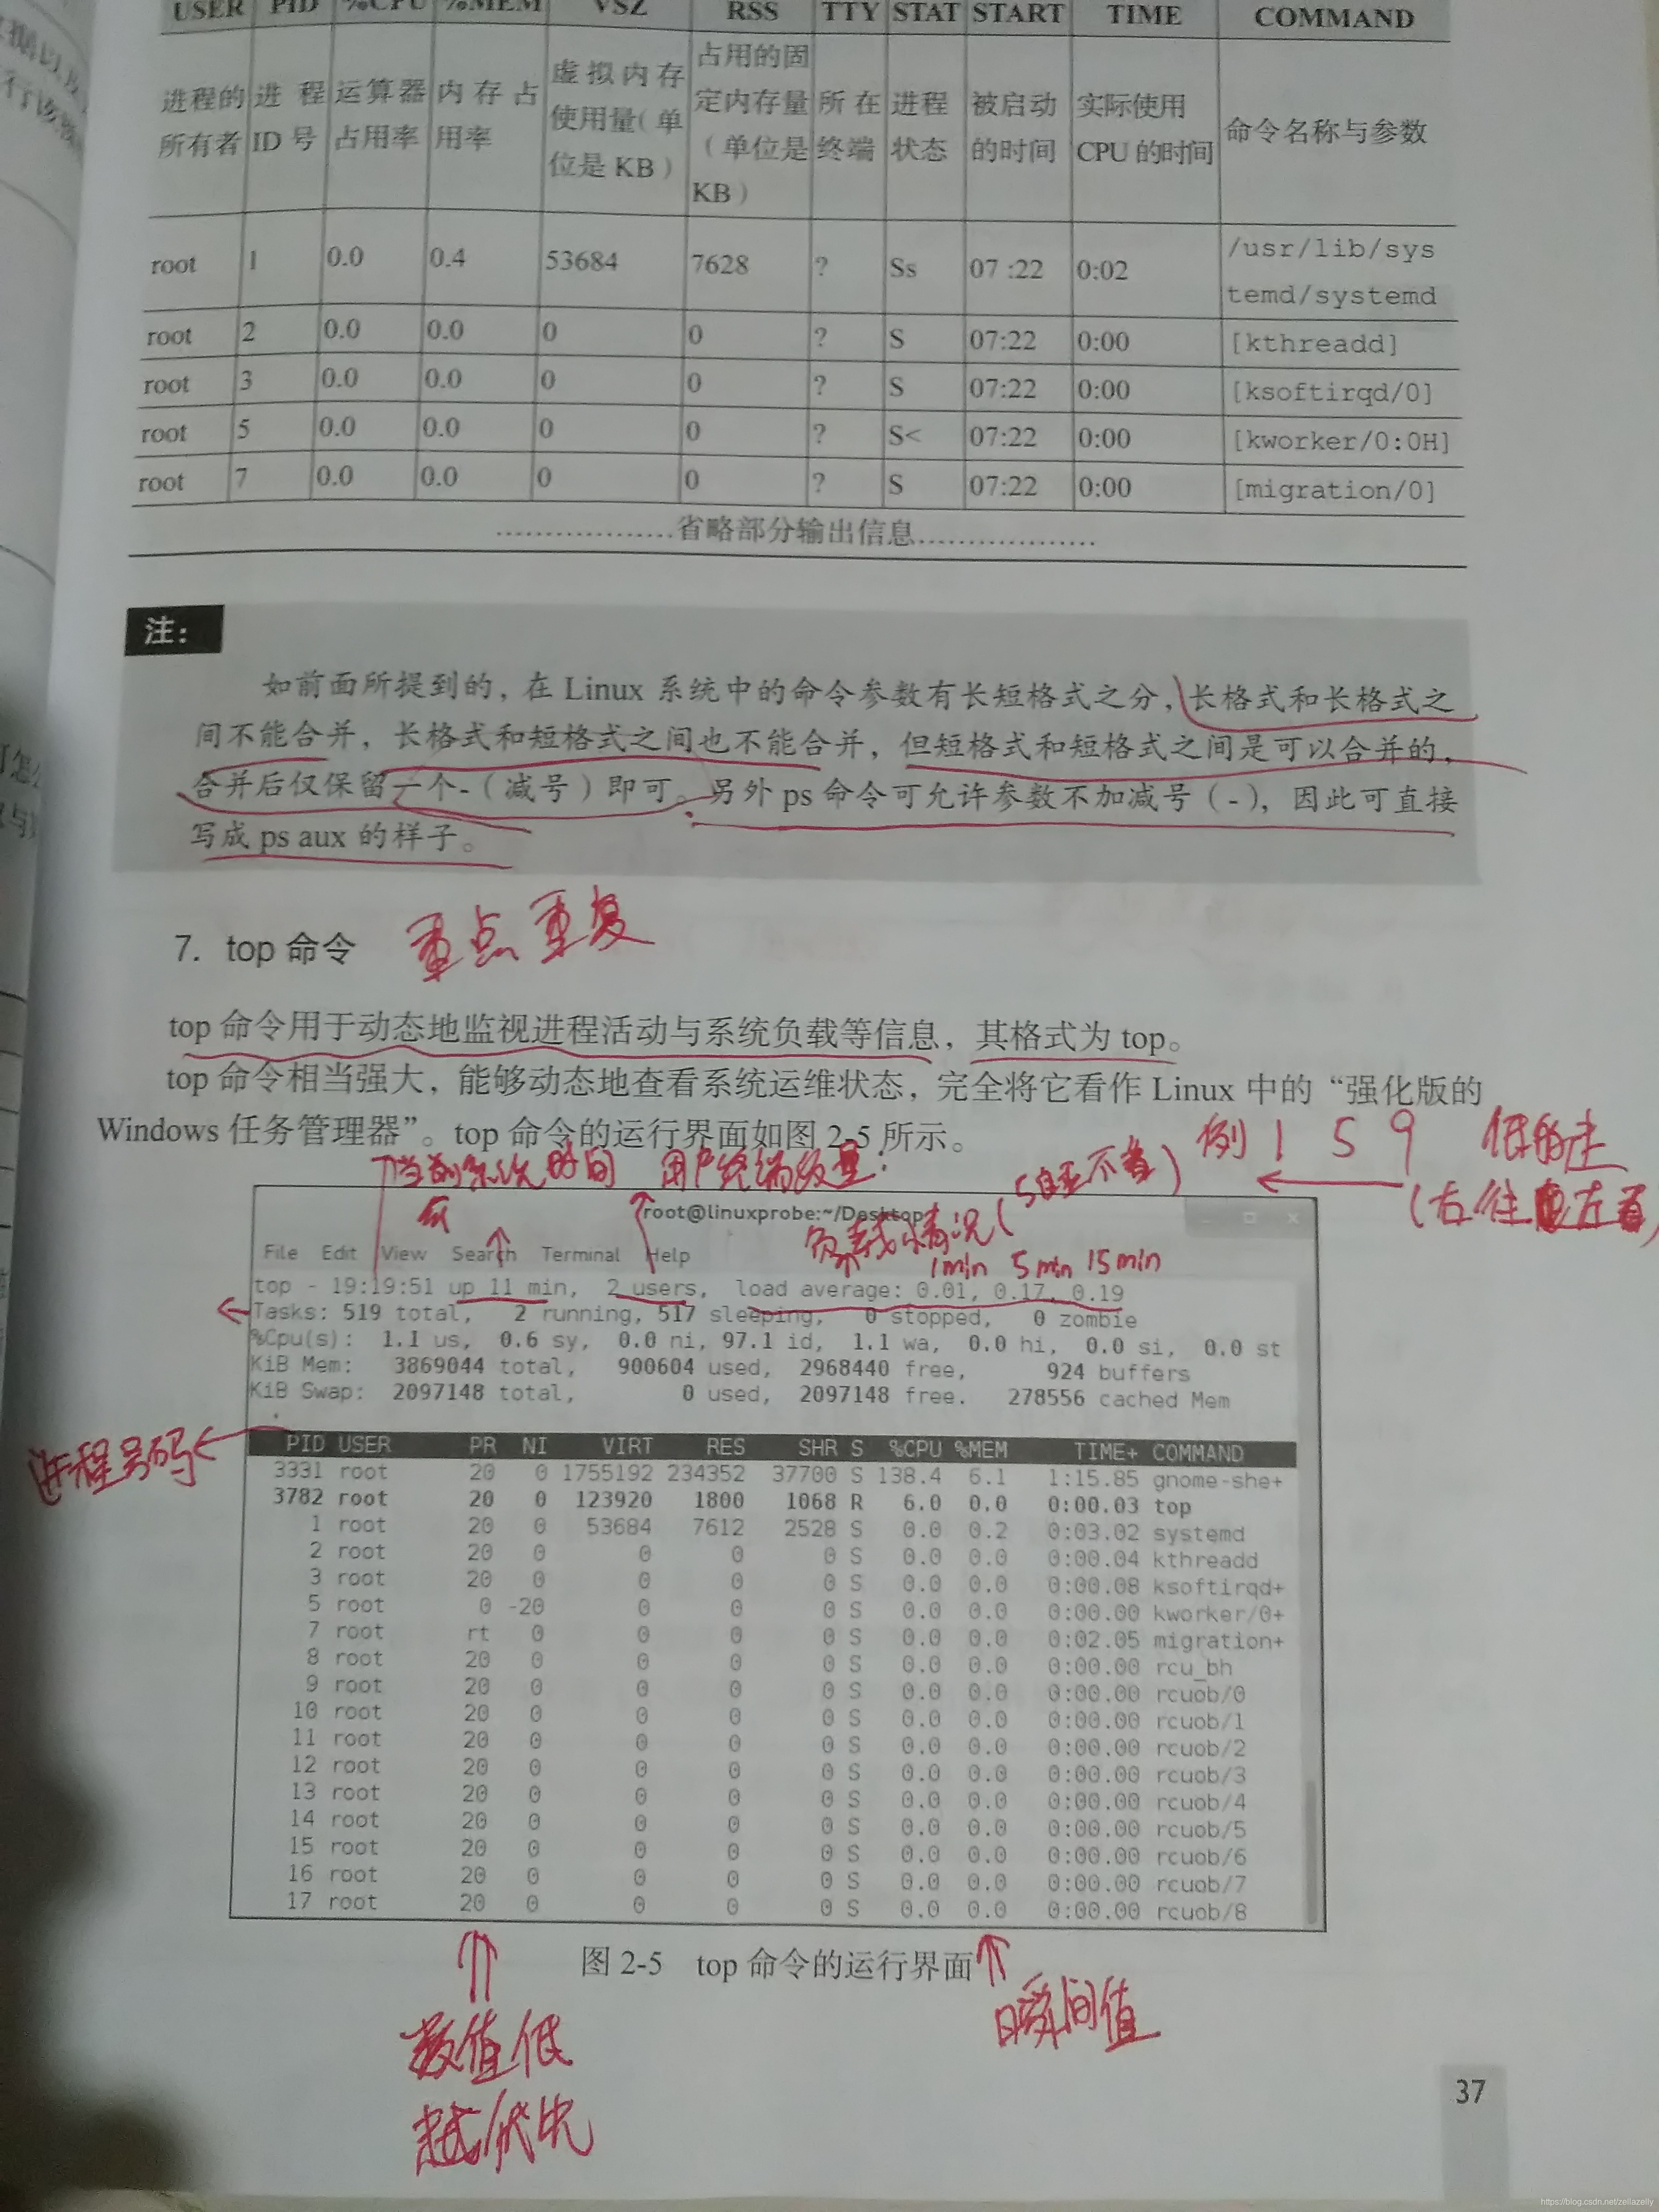 USER PID %CPU %MEM VSZ RSS TTY STAT START TIME COMMAND
进程的所有者 进程ID号 运算器占用率 内存占用率 虚拟内存使用量(单位是KB) 占用的固定内存量(单位是KB) 所在终端 进程状态 被启动的时间 实际使用CPU的时间 命令名称与参数
root 1 0.0 0.4 53684 7628 ? Ss 07 :22 0:02 /usr/lib/systemd/systemd
root 2 0.0 0.0 0 0 ? S 07:22 0:00 [kthreadd]
root 3 0.0 0.0 0 0 ? S 07:22 0:00 [ksoftirqd/0]
root 5 0.0 0.0 0 0 ? S< 07:22 0:00 [kworker/0:0H]
root 7 0.0 0.0 0 0 ? S 07:22 0:00 [migration/0]
………………省略部分输出信息………………
注：
如前面所提到的，在 Linux 系统中的命令参数有长短格式之分，长格式和长格式之
间不能合并，长格式和短格式之间也不能合并，但短格式和短格式之间是可以合并的，
合并后仅保留一个-（减号）即可。另外 ps 命令可允许参数不加减号（-），因此可直接
写成 ps aux 的样子。
7. top 命令 重点重复
top 命令用于动态地监视进程活动与系统负载等信息，其格式为 top。
top 命令相当强大，能够动态地查看系统运维状态，完全将它看作 Linux 中的“强化版的
Windows 任务管理器”。top 命令的运行界面如图 2-5 所示。
例 1 5 9
(右往左看)
当前系统时间 用户终端数量
负载情况
1min 5min 15min
root@linuxprobe:~/Desktop
File Edit View Search Terminal Help
top - 19:19:51 up 11 min, 2 users, load average: 0.01, 0.17, 0.19
Tasks: 519 total, 2 running, 517 sleeping, 0 stopped, 0 zombie
%Cpu(s): 1.1 us, 0.6 sy, 0.0 ni, 97.1 id, 1.1 wa, 0.0 hi, 0.0 si, 0.0 st
KiB Mem: 3869044 total, 900604 used, 2968440 free, 924 buffers
KiB Swap: 2097148 total, 0 used, 2097148 free. 278556 cached Mem
进程号码
PID USER PR NI VIRT RES SHR S %CPU %MEM TIME+ COMMAND
3331 root 20 0 1755192 234352 37700 S 138.4 6.1 1:15.85 gnome-she+
3782 root 20 0 123920 1800 1068 R 6.0 0.0 0:00.03 top
1 root 20 0 53684 7612 2528 S 0.0 0.2 0:03.02 systemd
2 root 20 0 0 0 0 S 0.0 0.0 0:00.04 kthreadd
3 root 20 0 0 0 0 S 0.0 0.0 0:00.08 ksoftirqd+
5 root 0 -20 0 0 0 S 0.0 0.0 0:00.00 kworker/0+
7 root rt 0 0 0 0 S 0.0 0.0 0:02.05 migration+
8 root 20 0 0 0 0 S 0.0 0.0 0:00.00 rcu_bh
9 root 20 0 0 0 0 S 0.0 0.0 0:00.00 rcuob/0
10 root 20 0 0 0 0 S 0.0 0.0 0:00.00 rcuob/1
11 root 20 0 0 0 0 S 0.0 0.0 0:00.00 rcuob/2
12 root 20 0 0 0 0 S 0.0 0.0 0:00.00 rcuob/3
13 root 20 0 0 0 0 S 0.0 0.0 0:00.00 rcuob/4
14 root 20 0 0 0 0 S 0.0 0.0 0:00.00 rcuob/5
15 root 20 0 0 0 0 S 0.0 0.0 0:00.00 rcuob/6
16 root 20 0 0 0 0 S 0.0 0.0 0:00.00 rcuob/7
17 root 20 0 0 0 0 S 0.0 0.0 0:00.00 rcuob/8
图 2-5 top 命令的运行界面
数值低
越优先
瞬间值
37
https://blog.csdn.net/zellazelly